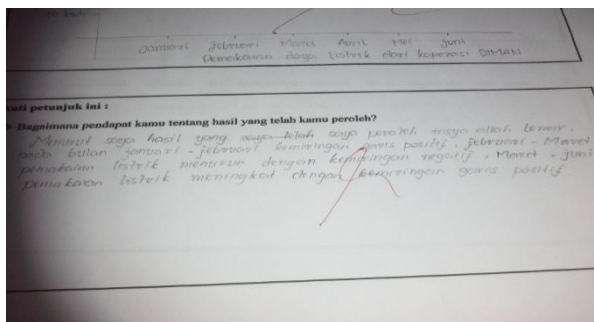 Januari Februari Maret April Mei Juni
Pemakaian daya listrik dari koperasi DIMAN
uti petunjuk ini :
Bagaimana pendapat kamu tentang hasil yang telah kamu peroleh?
Menurut saya hasil yang saya telah saya peroleh insya allah benar.
pada bulan januari - februari kemiringan garis positif, februari - Maret
pemakaian listrik menurun dengan kemiringan negatif, Maret - juni
pemakaian listrik meningkat dengan kemiringan garis positif